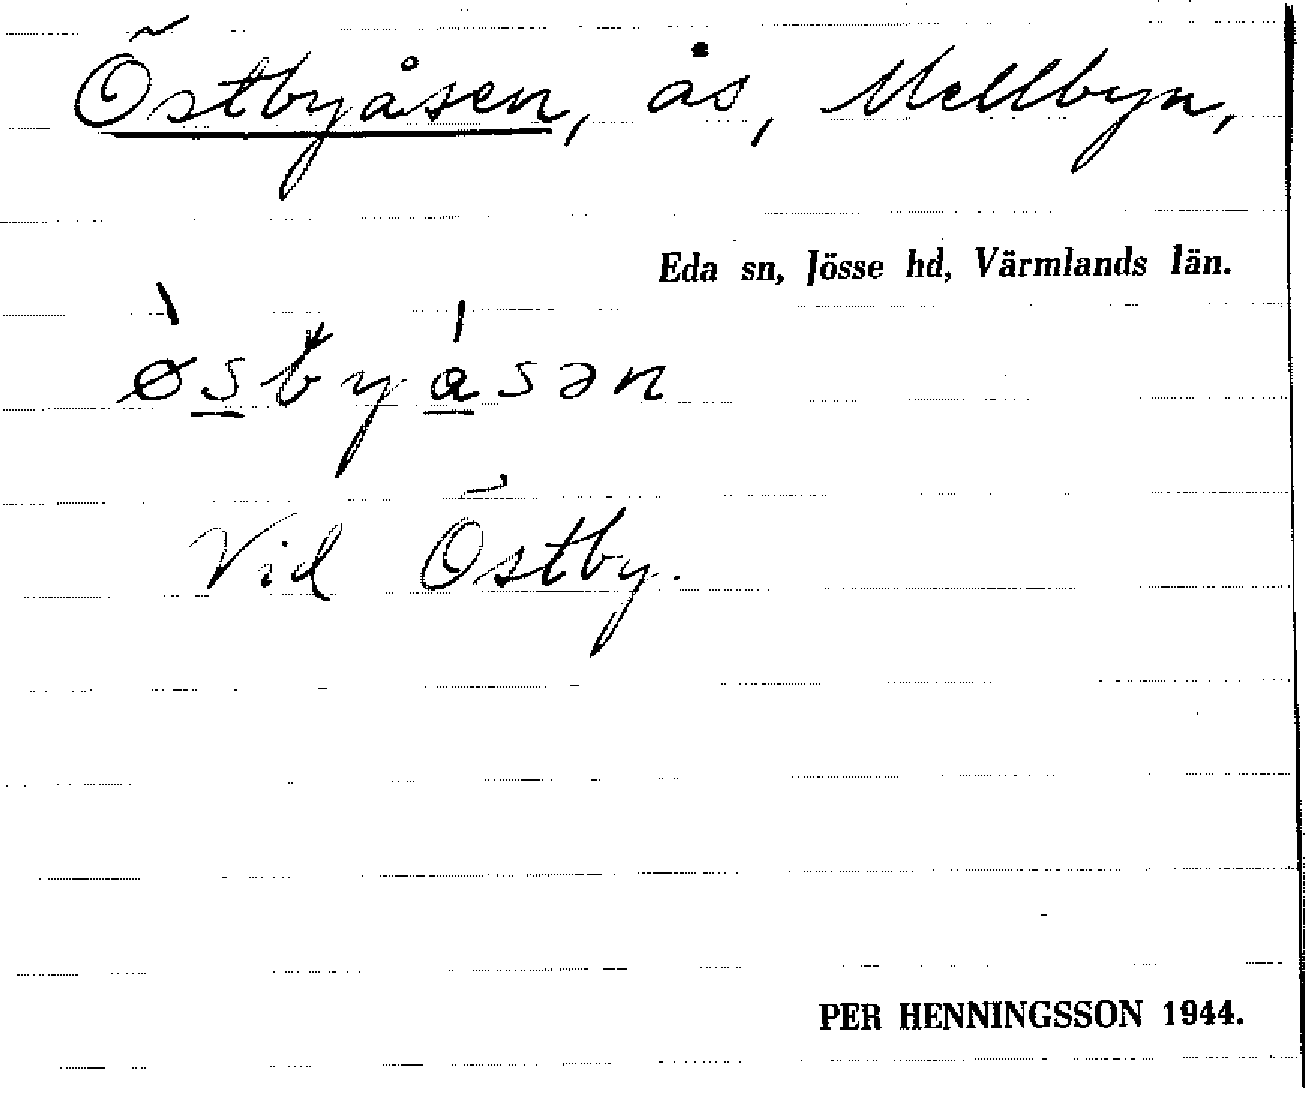 Östbyåsen, ås, Mellbyn,
Eda sn, Jösse hd, Värmlands län.
ø̀sbyásən
Vid Östby.
PER HENNINGSSON 1944.